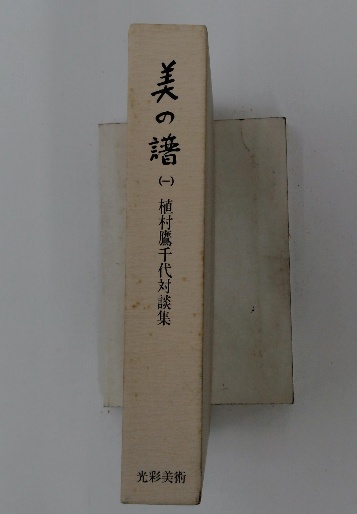 美の譜
(一)
植村鷹千代対談集
光彩美術